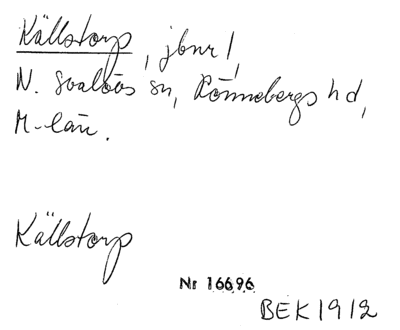 Källstorp, jbnr 1,
N. Svalövs sn, Rönnebergs hd,
M-län.
Källstorp
Nr 16696
BEK 1912